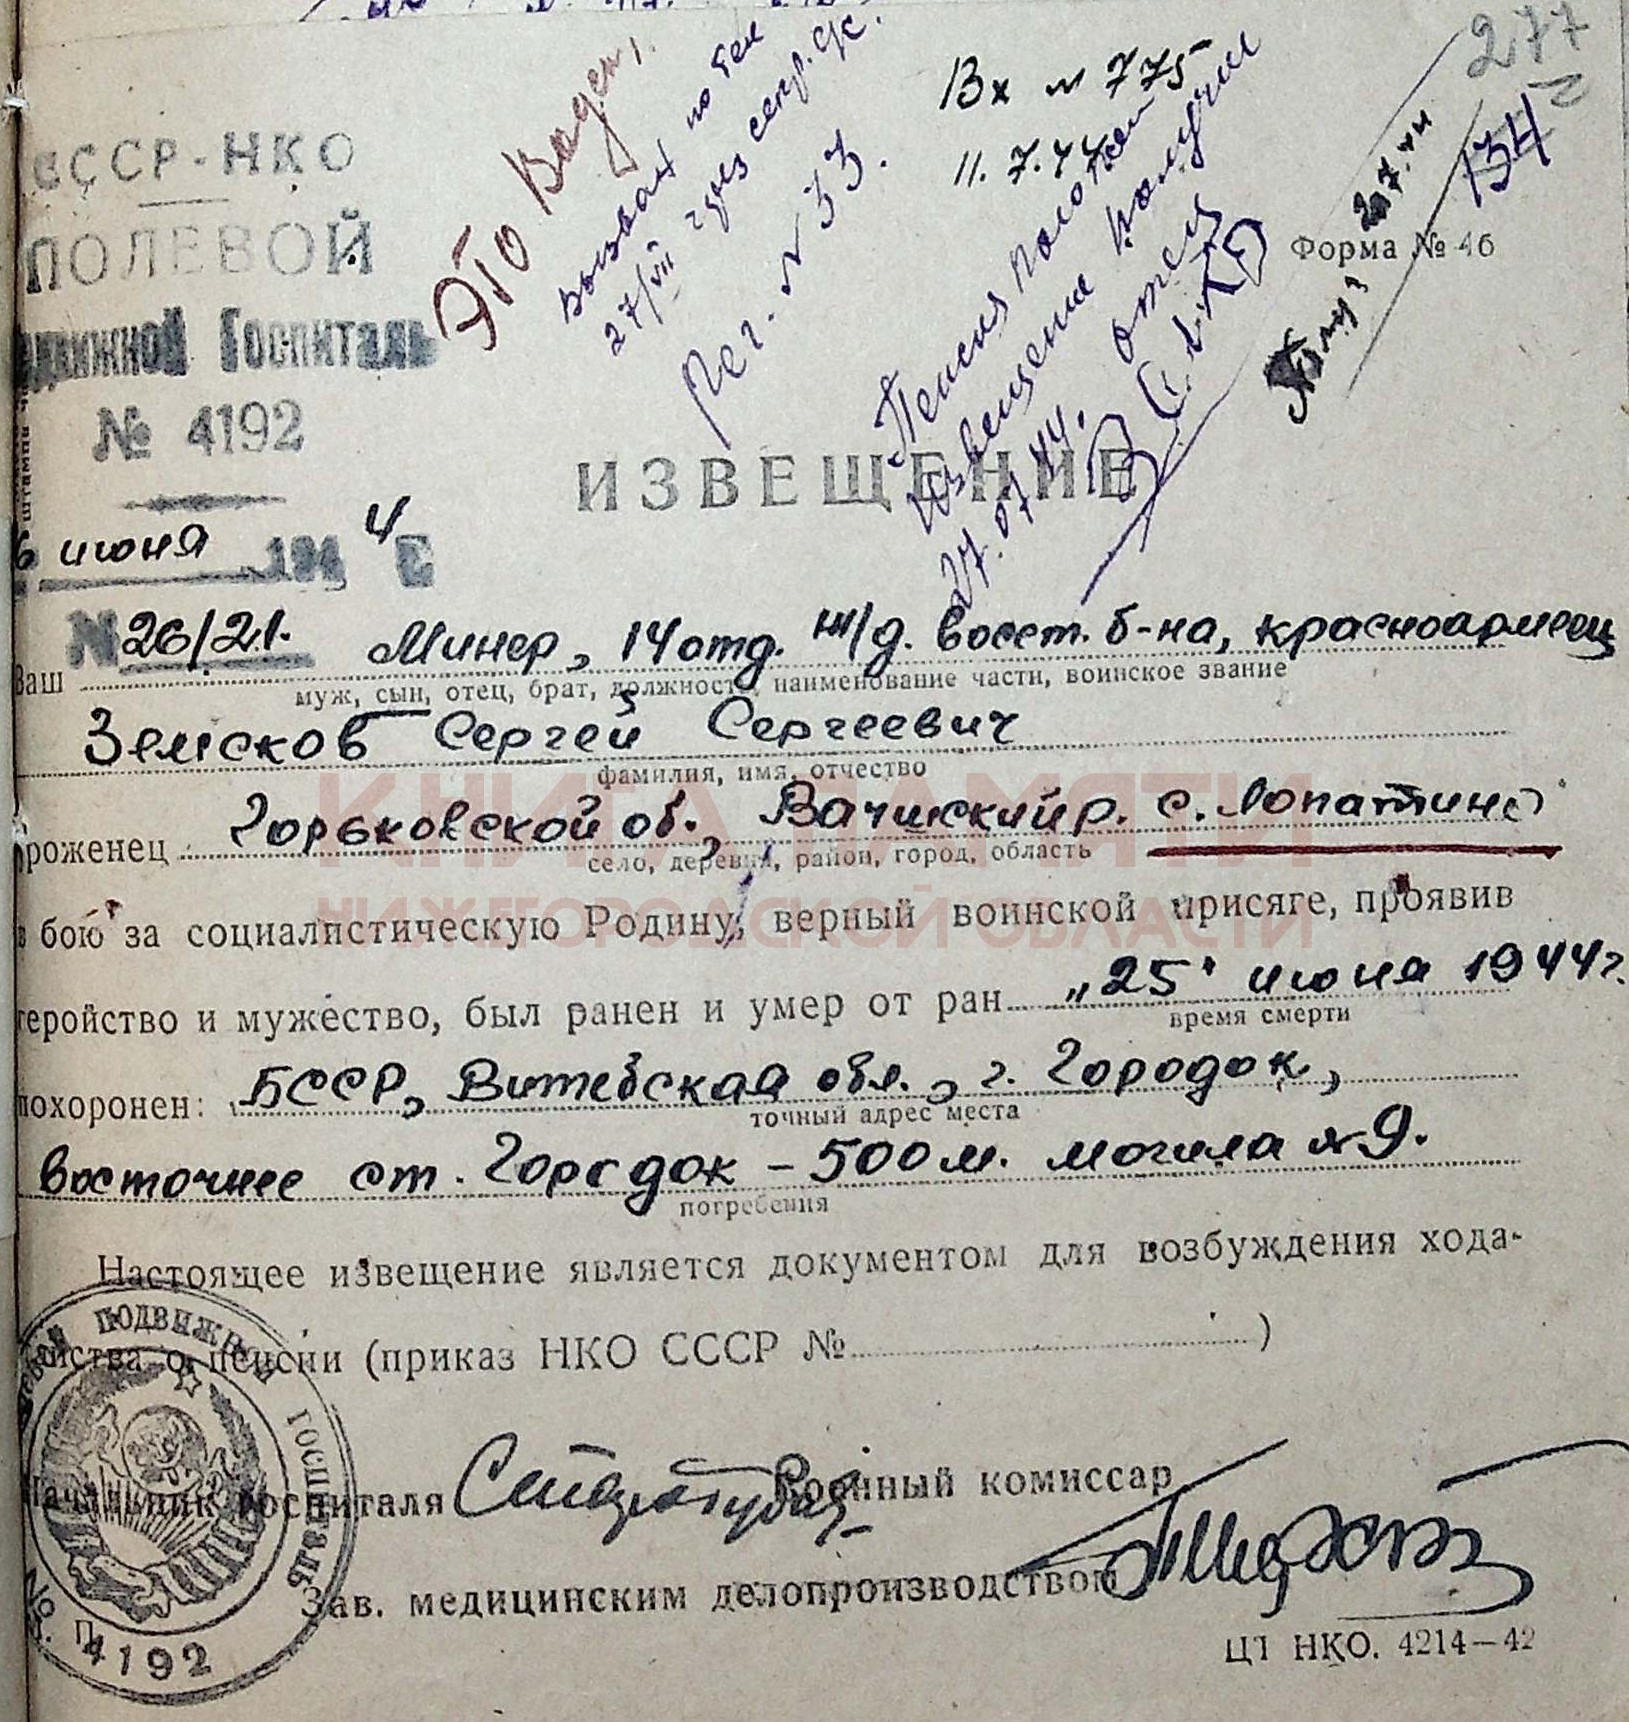 277
134
Вх № 775
11.7.44
Это Ваден
вызван по тел
27/VII через секр. с/с.
Рег. № 33.
Пенсия положен
Извещение получил
отец
27.07.44.
Форма № 46
СССР-НКО
ПОЛЕВОЙ
ПОДВИЖНОЙ ГОСПИТАЛЬ
№ 4192
ИЗВЕЩЕНИЕ
июня 1944
№ 26/21.
Ваш Минер, 14 отд. ж/д. восст. б-на, красноармеец
муж, сын, отец, брат, должность, наименование части, воинское звание
Земсков Сергей Сергеевич
фамилия, имя, отчество
уроженец Горьковской об., Вачиский р. с. Лопатино
село, деревня, район, город, область
в бою за социалистическую Родину, верный воинской присяге, проявив
геройство и мужество, был ранен и умер от ран „25" июня 1944 г.
время смерти
похоронен: БССР, Витебская обл., г. Городок,
точный адрес места
восточнее ст. Городок – 500 м. могила № 9.
погребения
Настоящее извещение является документом для возбуждения хода-
тайства о пенсии (приказ НКО СССР № )
Начальник госпиталя
Военный комиссар
Зав. медицинским делопроизводством
ЦТ НКО. 4214—42
ПОЛЕВОЙ ПОДВИЖНОЙ ГОСПИТАЛЬ
4192
КНИГА ПАМЯТИ
НИЖЕГОРОДСКОЙ ОБЛАСТИ